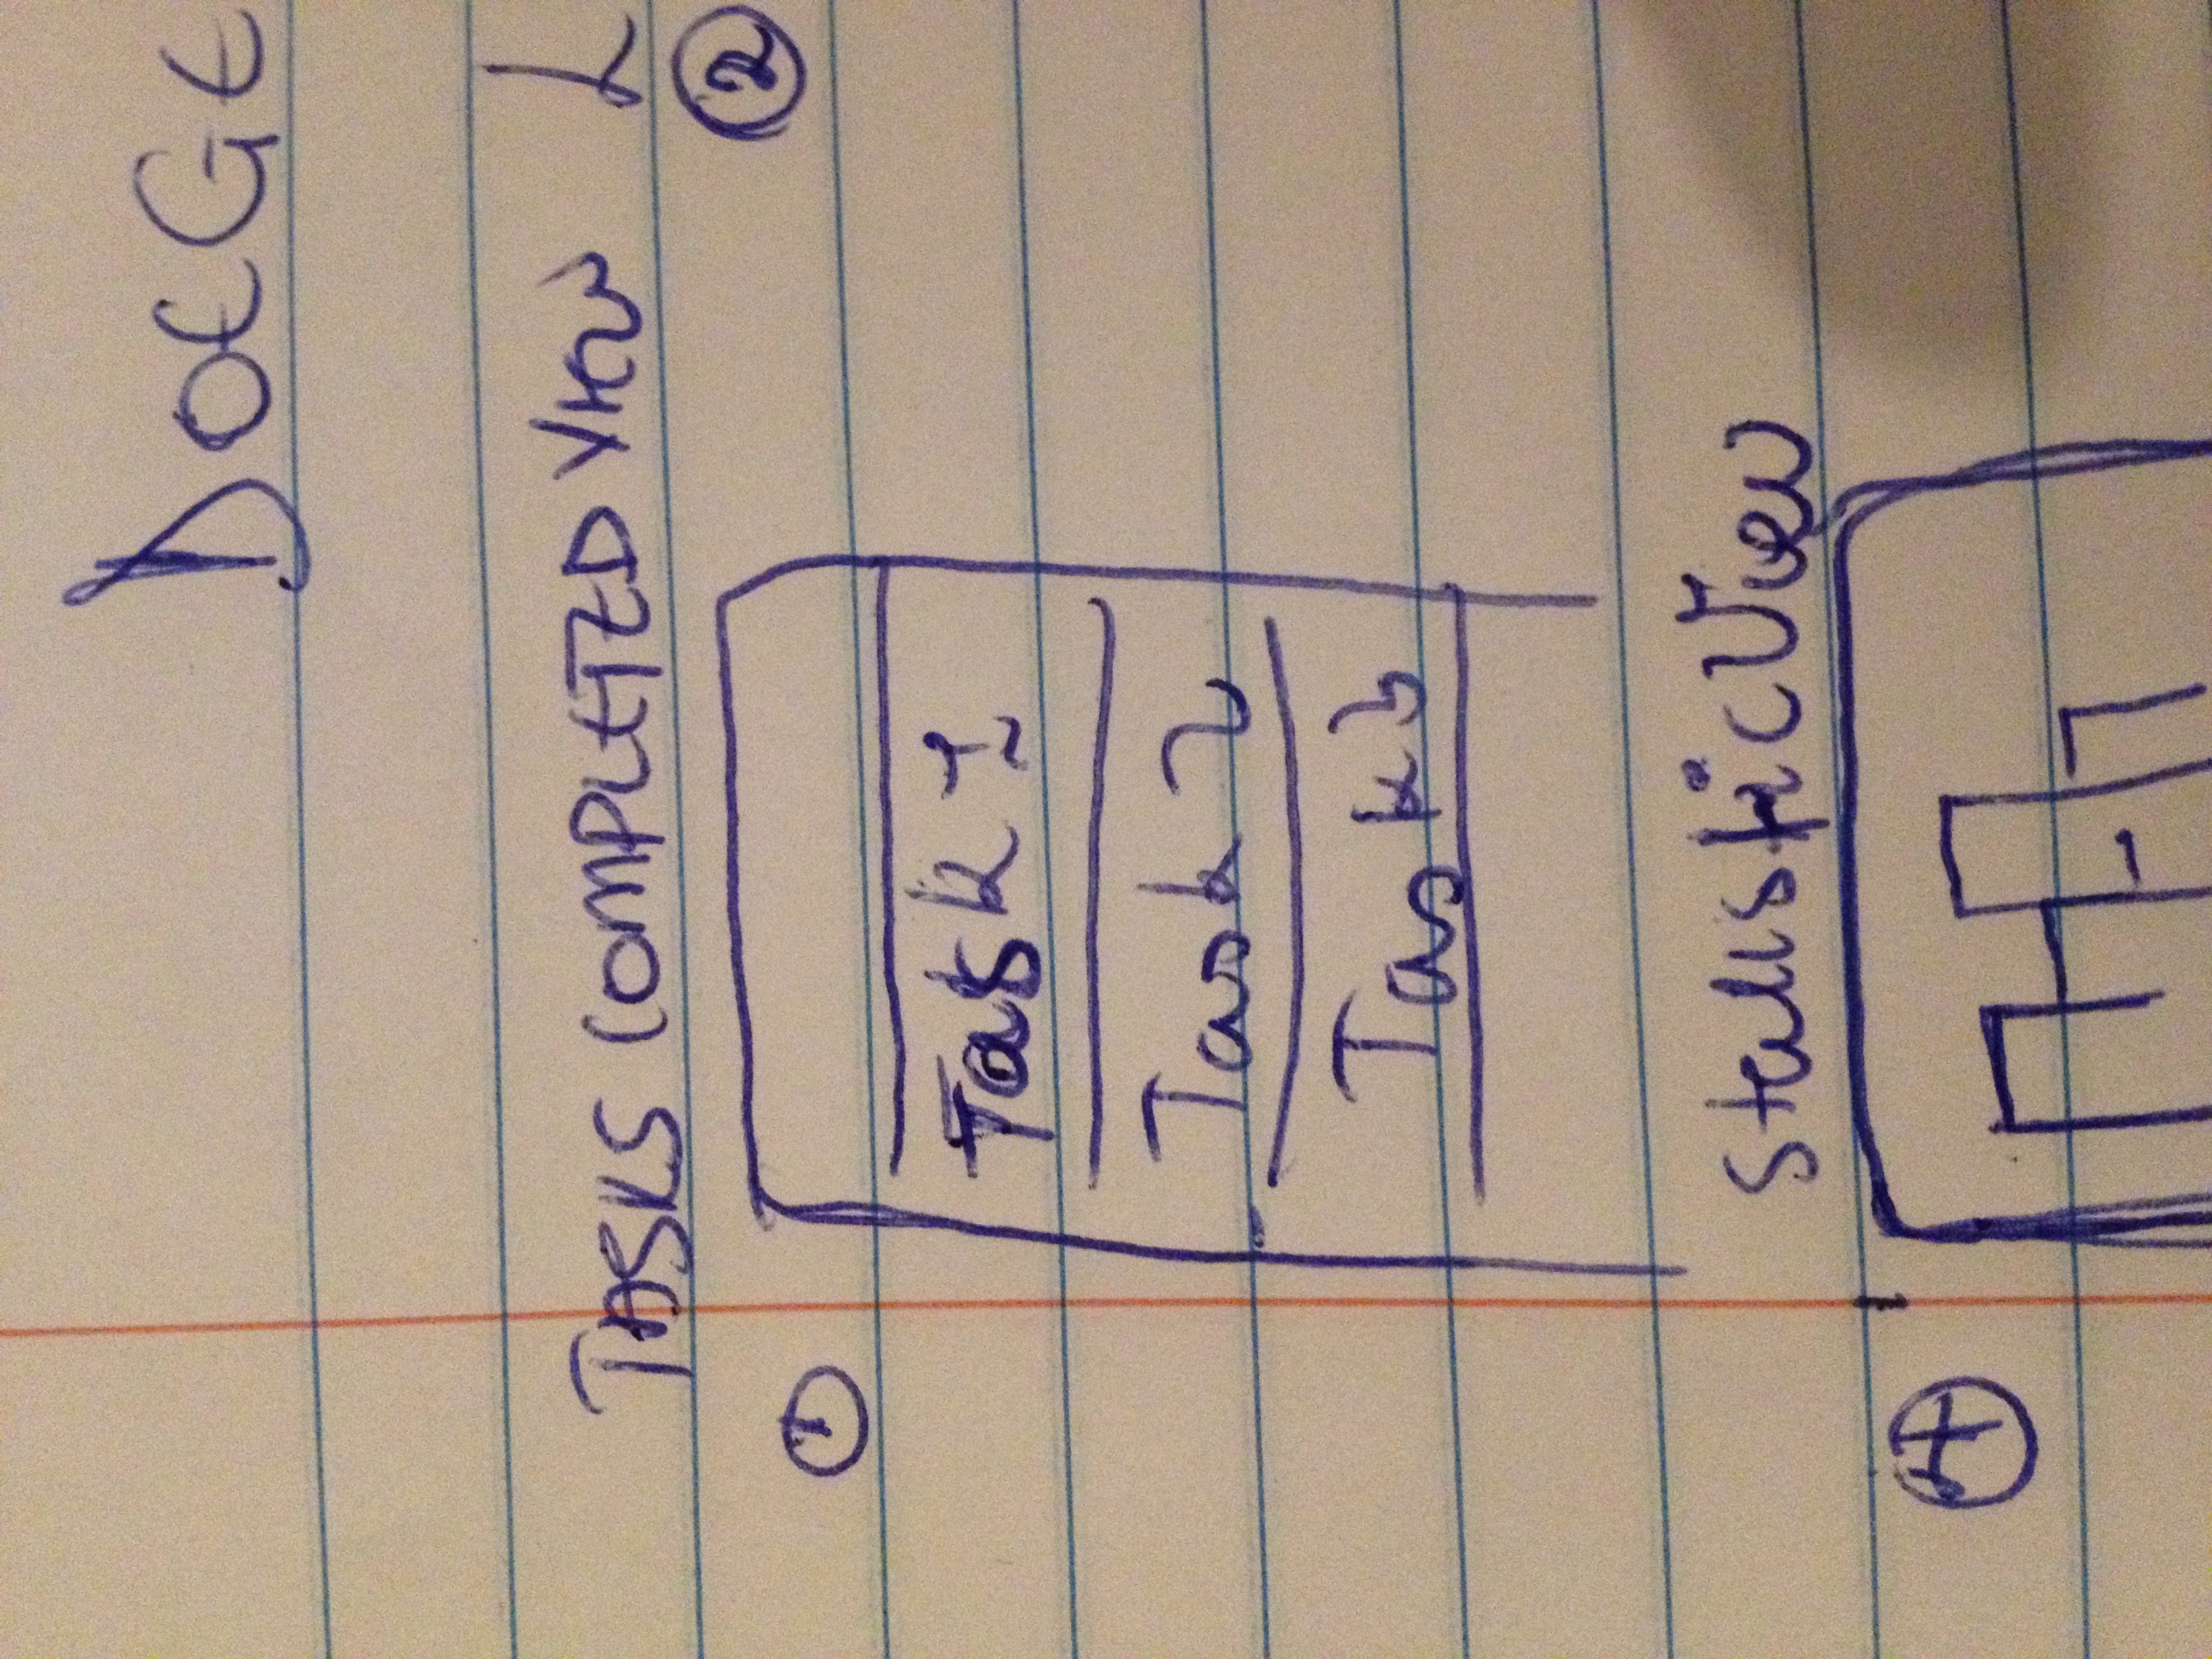 DOEGE
TASKS COMPLETED VIEW L
1 2
Task 1
Task 2
Task 3
Statistic View
4